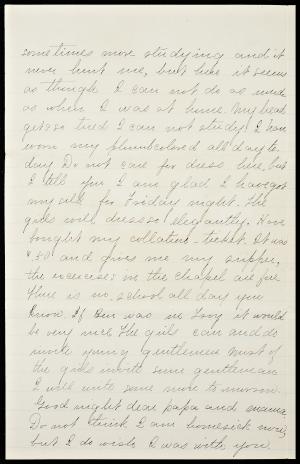 sometimes more studying and it
never hurt me, but here it seems
as though I can not do as much
as when I was at home. My head
gets so tired I can not study. I have
worn my plum colored all day to
day. Do not care for dress here, but
I tell you I am glad I have got
my silk for Friday night. The
girls will dress so elegantly. Have
bought my collation ticket. It was
$.50 and gives me my supper,
the exercises in the chapel are free
There is no school all day you
know. If Ben was in Troy it would
be very nice. The girls can and do
invite young gentlemen. Most of
the girls invite some gentleman
I will write some more to-morrow.
Good night dear papa and mama
Do not think I am homesick now,
but I do wish I was with you.